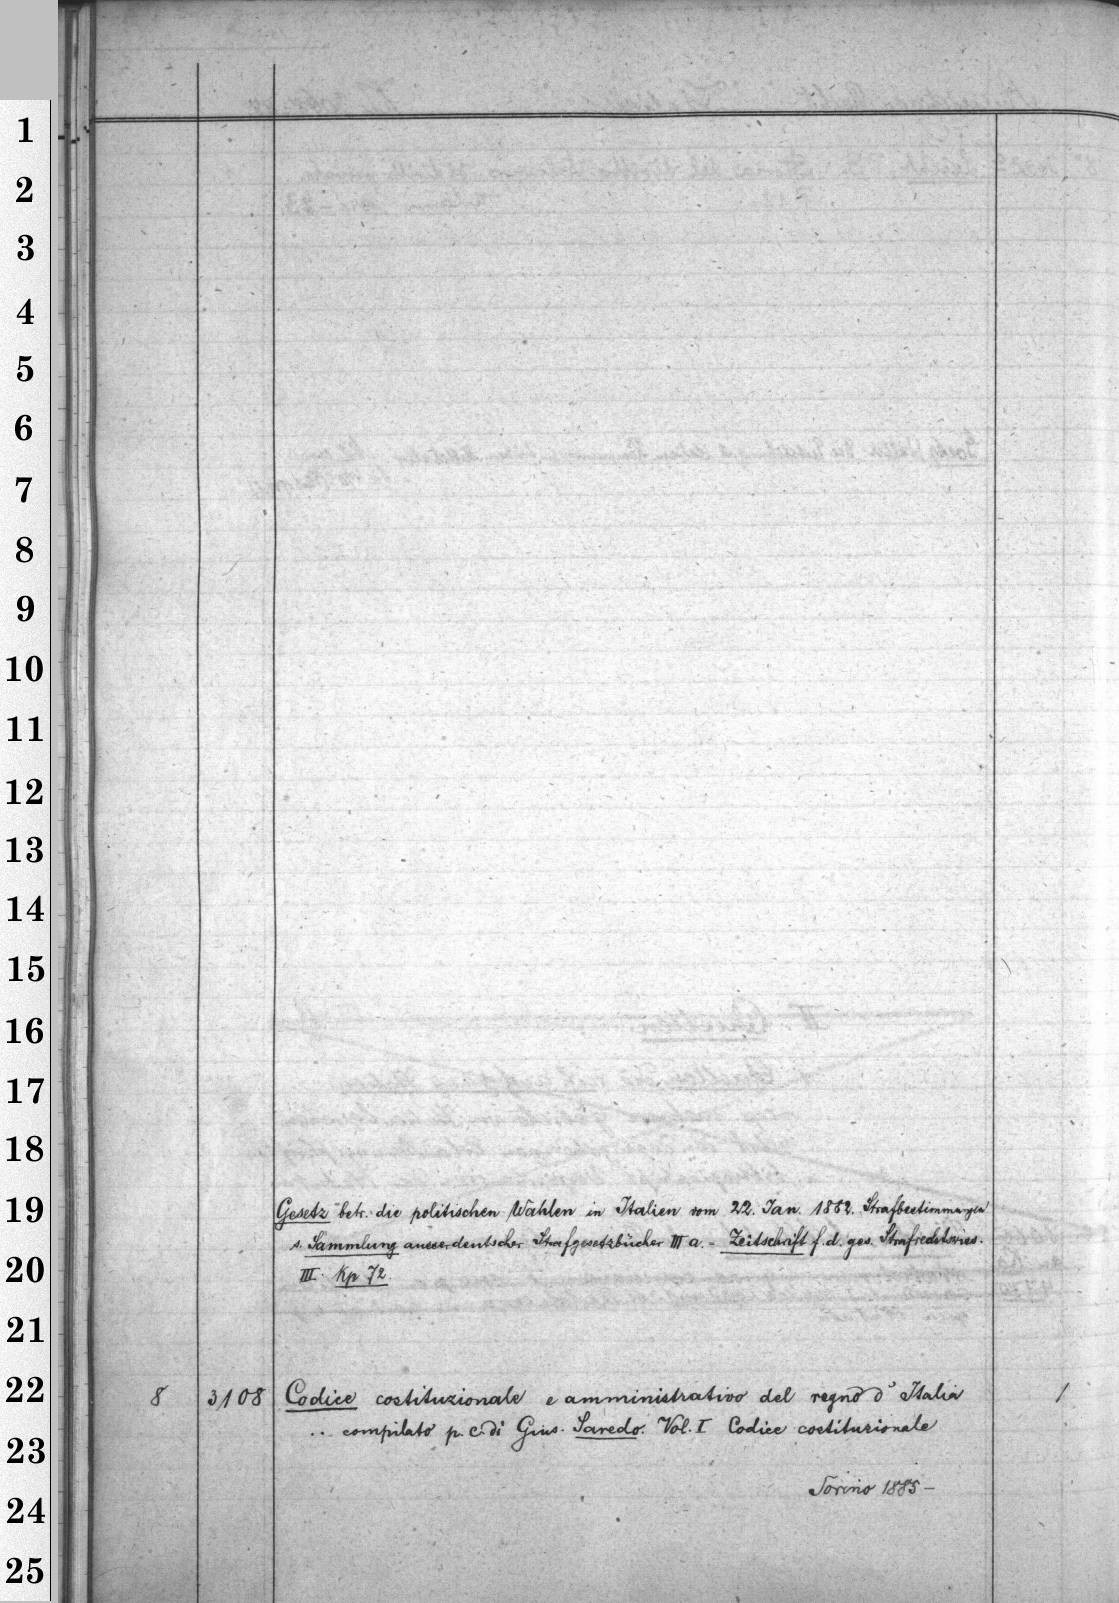 1
2
3
4
5
6
7
8
9
10
11
12
13
14
15
16
17
18
19 Gesetz betr. die politischen Wahlen in Italien vom 22. Jan. 1882. Strafbestimmungen
s. Sammlung ausserdeutscher Strafgesetzbücher III a. - Zeitschrift f. d. ges. Strafrechtswiss.
20 III. Kp 72.
21
22 8 3108 Codice costituzionale e amministrativo del regno d'Italia 1
.. compilato p. c. di Gius. Saredo. Vol. I Codice costituzionale
23
24 Torino 1885 -
25